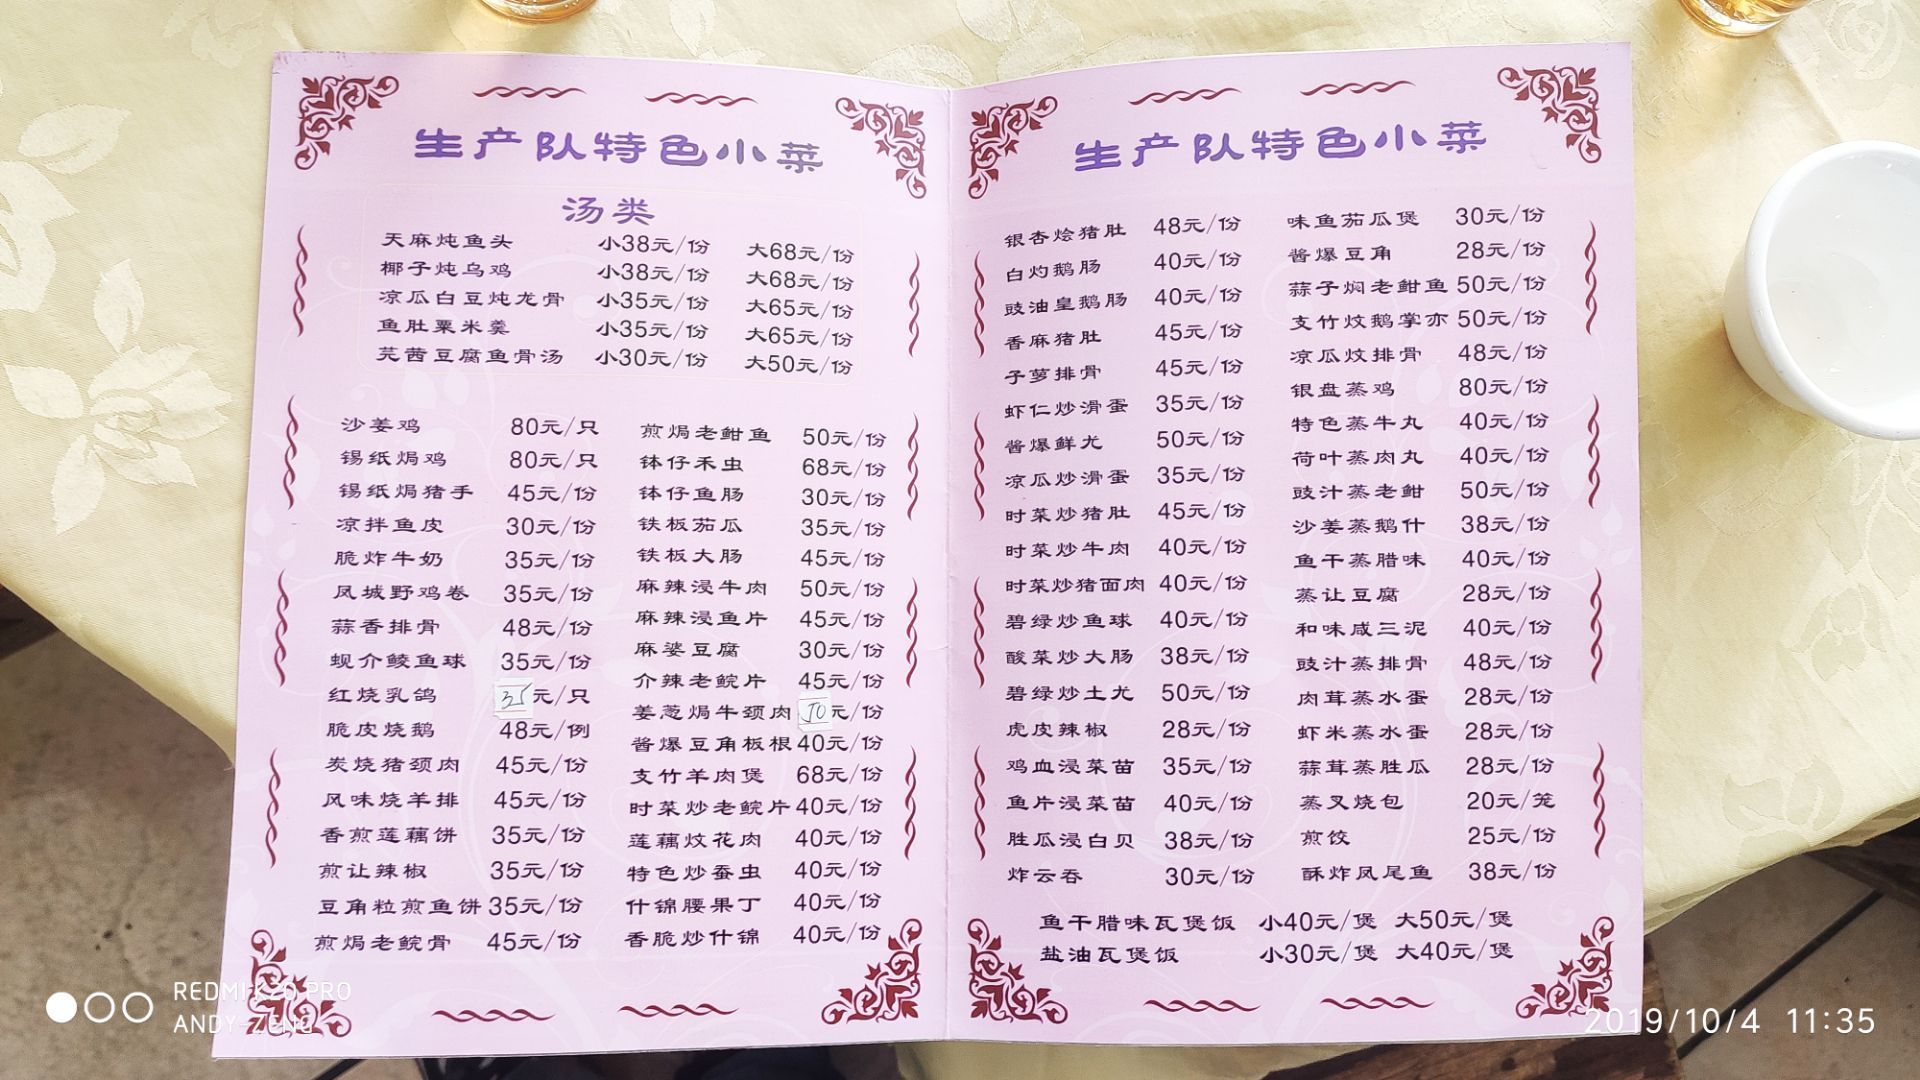 生产队特色小菜
汤类
天麻炖鱼头 小38元/份 大68元/份
椰子炖乌鸡 小38元/份 大68元/份
凉瓜白豆炖龙骨 小35元/份 大65元/份
鱼肚粟米羹 小35元/份 大65元/份
芫茜豆腐鱼骨汤 小30元/份 大50元/份
沙姜鸡 80元/只
锡纸焗鸡 80元/只
锡纸焗猪手 45元/份
凉拌鱼皮 30元/份
脆炸牛奶 35元/份
凤城野鸡卷 35元/份
蒜香排骨 48元/份
蚬介鲮鱼球 35元/份
红烧乳鸽 35元/只
脆皮烧鹅 48元/例
炭烧猪颈肉 45元/份
风味烧羊排 45元/份
香煎莲藕饼 35元/份
煎让辣椒 35元/份
豆角粒煎鱼饼 35元/份
煎焗老鲩骨 45元/份
煎焗老鲋鱼 50元/份
钵仔禾虫 68元/份
钵仔鱼肠 30元/份
铁板茄瓜 35元/份
铁板大肠 45元/份
麻辣浸牛肉 50元/份
麻辣浸鱼片 45元/份
麻婆豆腐 30元/份
介辣老鲩片 45元/份
姜葱焗牛颈肉 50元/份
酱爆豆角板根 40元/份
支竹羊肉煲 68元/份
时菜炒老鲩片 40元/份
莲藕炆花肉 40元/份
特色炒蚕虫 40元/份
什锦腰果丁 40元/份
香脆炒什锦 40元/份
生产队特色小菜
银杏烩猪肚 48元/份
白灼鹅肠 40元/份
豉油皇鹅肠 40元/份
香麻猪肚 45元/份
子萝排骨 45元/份
虾仁炒滑蛋 35元/份
酱爆鲜尤 50元/份
凉瓜炒滑蛋 35元/份
时菜炒猪肚 45元/份
时菜炒牛肉 40元/份
时菜炒猪面肉 40元/份
碧绿炒鱼球 40元/份
酸菜炒大肠 38元/份
碧绿炒土尤 50元/份
虎皮辣椒 28元/份
鸡血浸菜苗 35元/份
鱼片浸菜苗 40元/份
胜瓜浸白贝 38元/份
炸云吞 30元/份
味鱼茄瓜煲 30元/份
酱爆豆角 28元/份
蒜子焖老鲋鱼 50元/份
支竹炆鹅掌亦 50元/份
凉瓜炆排骨 48元/份
银盘蒸鸡 80元/份
特色蒸牛丸 40元/份
荷叶蒸肉丸 40元/份
豉汁蒸老鲋 50元/份
沙姜蒸鹅什 38元/份
鱼干蒸腊味 40元/份
蒸让豆腐 28元/份
和味咸三泥 40元/份
豉汁蒸排骨 48元/份
肉茸蒸水蛋 28元/份
虾米蒸水蛋 28元/份
蒜茸蒸胜瓜 28元/份
蒸叉烧包 20元/笼
煎饺 25元/份
酥炸凤尾鱼 38元/份
鱼干腊味瓦煲饭 小40元/煲 大50元/煲
盐油瓦煲饭 小30元/煲 大40元/煲
REDMI K20 PRO
ANDY-ZENG
2019/10/4 11:35